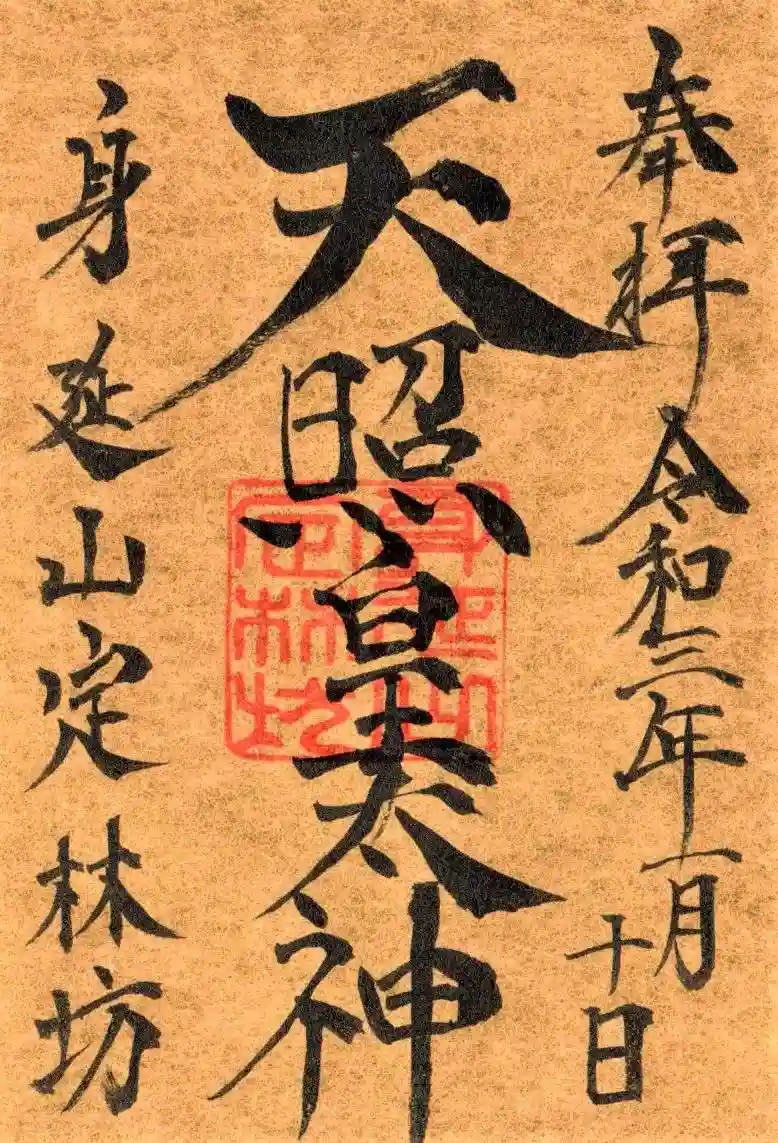 奉拝 令和三年一月
十日
天照皇太神
身延山定林坊
身延山
定林坊